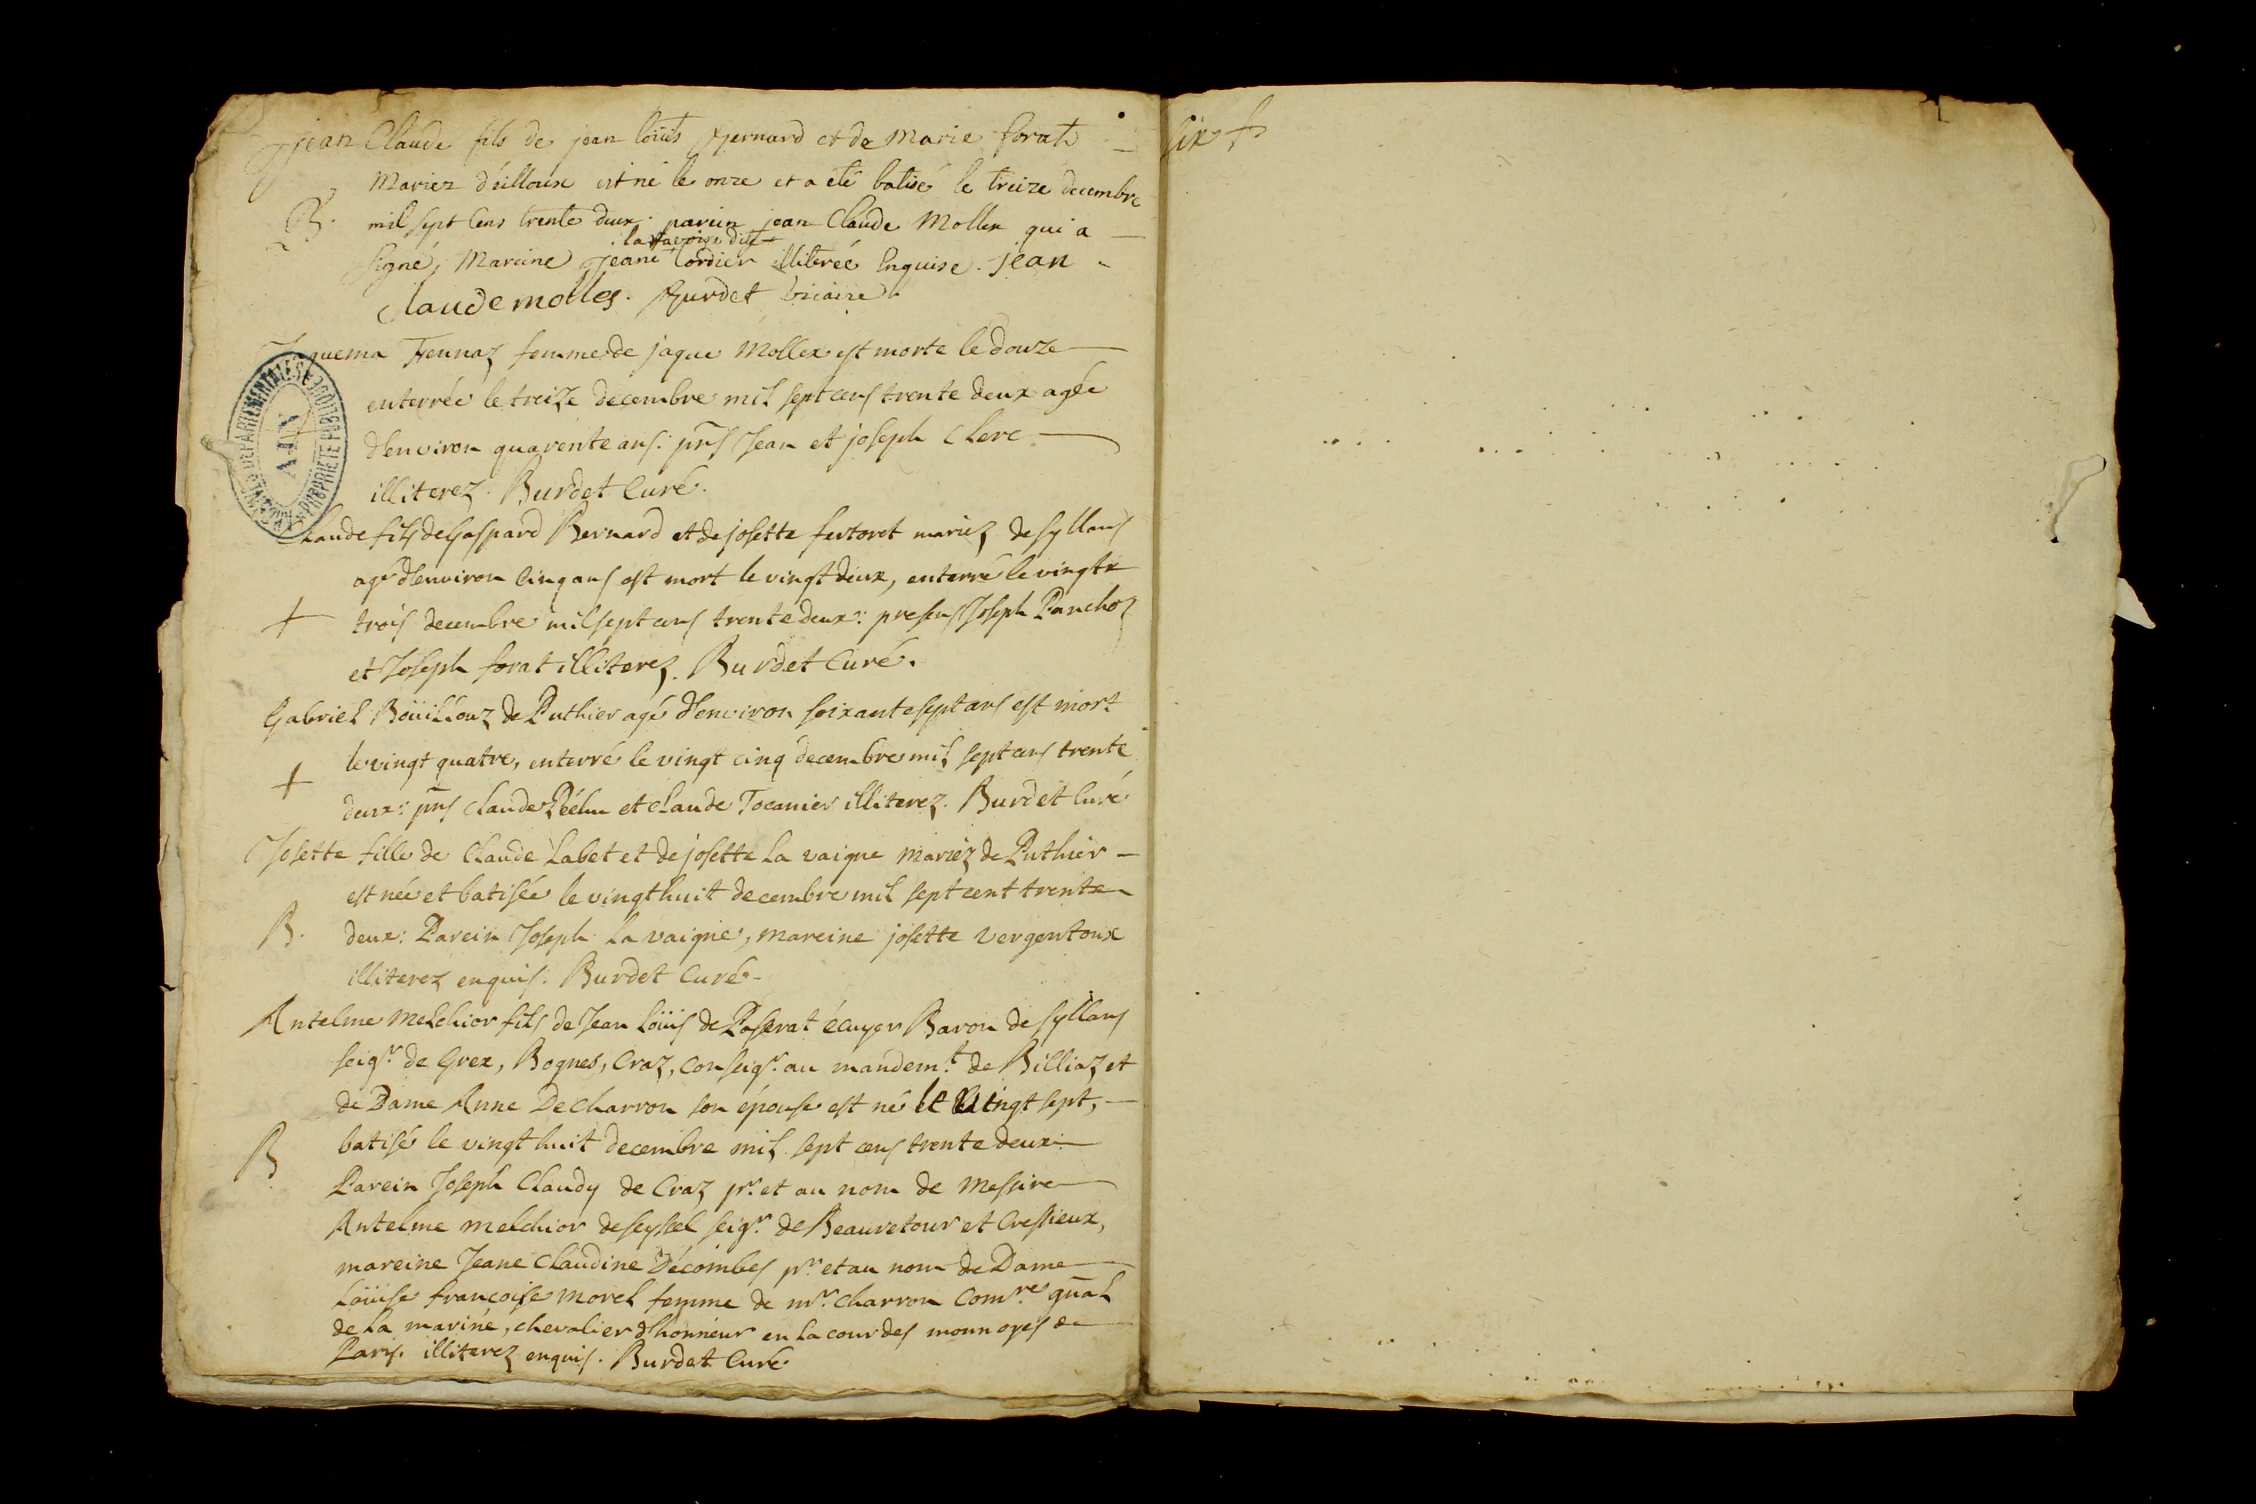 jean Claude fils de jean loüis Bernard et de Marie forat
Mariez d'éilloux est né le onze et a été batisé le treize decembre
B. mil sept cens trente deux. parein jean Claude Mollex qui a
signé, Mareine jeane Cordier illiterée Enquise. jean
claude molles. Burdet vicaire
Jaquema Fennaz femme de jaque Mollex est morte le douze
enterrée le treize decembre mil sept cens trente deux agée
d'environ quarente ans: pns Jean et joseph Clerc
illiterez. Burdet Curé.
Claude fils de Gaspard Bernard et de josette fertoret mariez de Syllans
agé d'environ Cinq ans est mort le vingt deux, enterré le vingt
+ trois decembre mil sept cens trente deux: presens Joseph Panchoz
et Joseph forat illiterez. Burdet Curé.
Gabriel Boüillouz de Puthier agé d'environ soixante sept ans est mort
le vingt quatre, enterré le vingt cinq decembre mil sept cens trente
+ deux: pns Claude et Claude Tocanier illiterez. Burdet Curé
Josette fille de Claude Labet et de josette La vaigne mariez de Puthier
est née et batisée le vingt huit decembre mil sept cent trente
B. deux: Parein Joseph La vaigne, mareine josette Vergentoux
illiterez enquis. Burdet Curé
Antelme Melchior fils de Jean Loüis de Poserat écuyer Baron de Syllans
seigr. de Grex, Bognes, Craz, conseigr. au mandemt. de Billiaz et
de Dame Anne De Charron son épouse est né le vingt sept,
B batisé le vingt huit decembre mil sept cens trente deux
Parein Joseph Claudy de Craz pr. et au nom de Messire
Antelme Melchior de Seyssel seigr. de Beauretour et Cressieux,
mareine Jeane Claudine Décombes pr. et au nom de Dame
Loüise françoise Morel femme de mr. Charron Comre gnal
de La marine, chevalier d'honneur en La cour des monnoyes de
Paris. illiterez enquis. Burdet Curé
six f.
ARCHIVES DEPARTEMENTALES
AIN
PROPRIETE PUBLIQUE